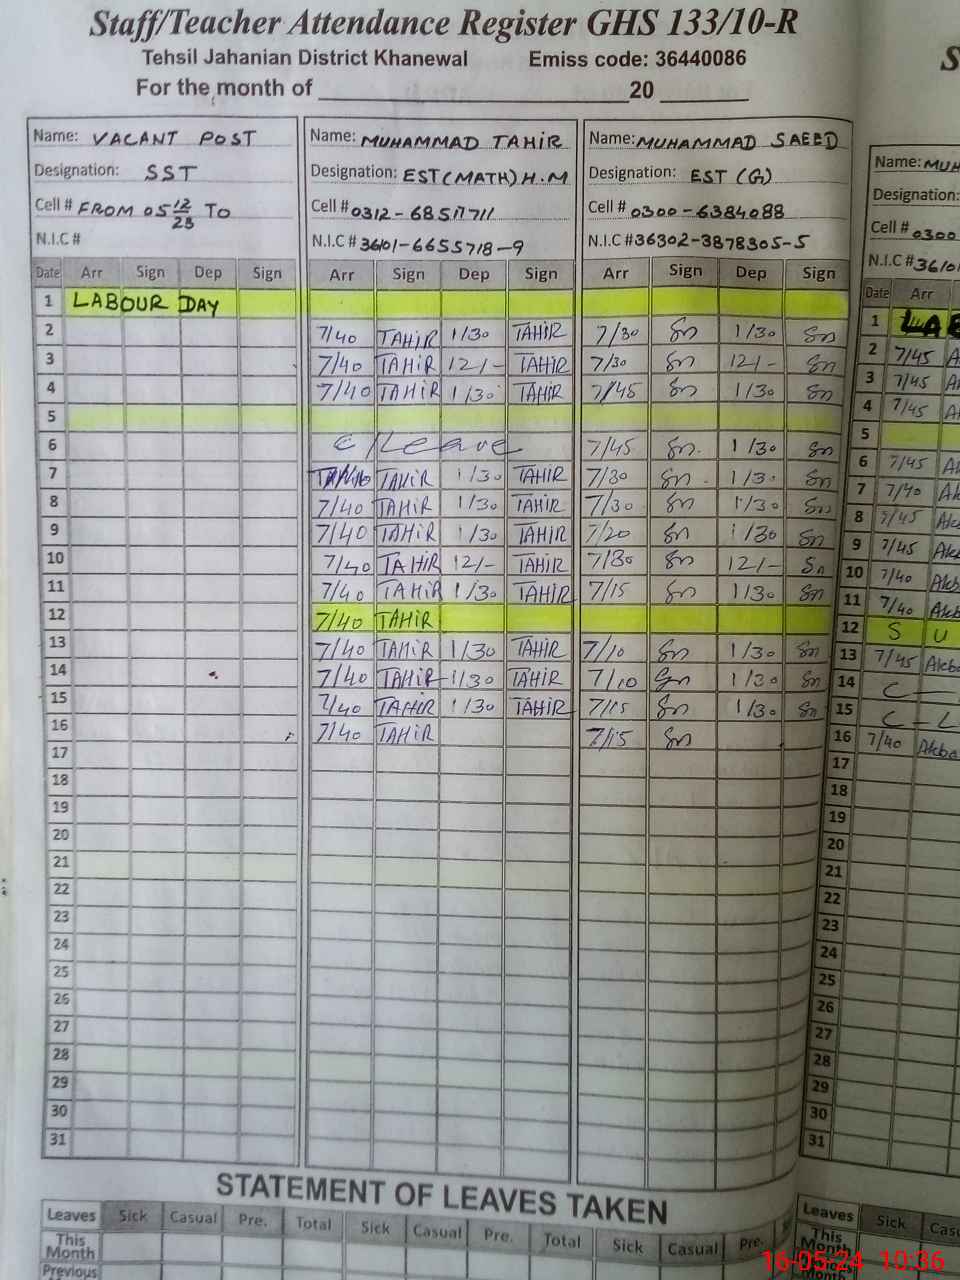 Staff/Teacher Attendance Register GHS 133/10-R
Tehsil Jahanian District Khanewal Emiss code: 36440086
For the month of 20
Name: VACANT POST Name: MUHAMMAD TAHIR Name: MUHAMMAD SAEED Name: MUH
Designation: SST Designation: EST (MATH) H.M Designation: EST (G) Designation:
Cell # FROM 05 12/23 TO Cell # 0312-6851711 Cell # 0300-6384088 Cell # 0300
N.I.C # N.I.C # 36101-6655718-9 N.I.C # 36302-3878305-5 N.I.C # 3610
Date Arr Sign Dep Sign Arr Sign Dep Sign Arr Sign Dep Sign Date Arr
1 LABOUR DAY 1 LAB
2 7/40 TAHIR 1/30 TAHIR 7/30 Sn 1/30 Sn 2 7/45 A
3 7/40 TAHIR 12/- TAHIR 7/30 Sn 12/- Sn 3 7/45 A
4 7/40 TAHIR 1/30 TAHIR 7/45 Sn 1/30 Sn 4 7/45 A
5 5
6 C/Leave 7/45 Sn 1/30 Sn 6 7/45 Ak
7 TAHIR 1/30 TAHIR 7/30 Sn 1/30 Sn 7 7/40 Ak
8 7/40 TAHIR 1/30 TAHIR 7/30 Sn 1/30 Sn 8 7/45 Ak
9 7/40 TAHIR 1/30 TAHIR 7/20 Sn 1/30 Sn 9 7/45 Ak
10 7/40 TAHIR 12/- TAHIR 7/30 Sn 12/- Sn 10 7/40 Akb
11 7/40 TAHIR 1/30 TAHIR 7/15 Sn 1/30 Sn 11 7/40 Akb
12 7/40 TAHIR 12 S U
13 7/40 TAHIR 1/30 TAHIR 7/10 Sn 1/30 Sn 13 7/45 Akba
14 7/40 TAHIR 1/30 TAHIR 7/10 Sn 1/30 Sn 14 C-
15 7/40 TAHIR 1/30 TAHIR 7/15 Sn 1/30 Sn 15 C-L
16 7/40 TAHIR 7/15 Sn 16 7/40 Akba
17 17
18 18
19 19
20 20
21 21
22 22
23 23
24 24
25 25
26 26
27 27
28 28
29 29
30 30
31 31
STATEMENT OF LEAVES TAKEN
Leaves Sick Casual Pre. Total Sick Casual Pre. Total Sick Casual Pre. Leaves Sick Cas
This Month This Month
Previous
16-05-24 10:36